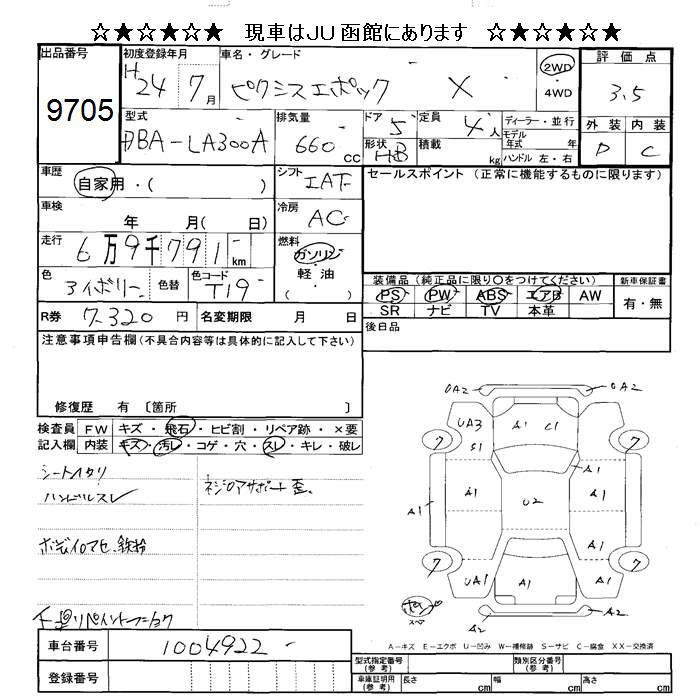 ☆★☆★☆★ 現車はJU函館にあります ☆★☆★☆★
出品番号 初度登録年月 車名・グレード 評価点
9705
H24 7月 ピクシスエポック X 2WD 4WD 3.5
型式 排気量 ドア 定員 ディーラー・並行 外装 内装
DBA-LA300A 660cc 5 4人 モデル年式 年式 D C
形状 HB 積載 kg ハンドル 左・右
車歴 自家用・( ) シフト IAT セールスポイント (正常に機能するものに限ります)
車検 年 月( 日) 冷房 AC
走行 6万9千791km 燃料 ガソリン 軽油 ( )
色 アイボリー 色替 色コード T19
装備品 (純正品に限り○をつけてください) 新車保証書
PS PW ABS エアB AW 有・無
SR ナビ TV 本革
R券 7,320円 名変期限 月 日 後日品
注意事項申告欄(不具合内容等は具体的に記入して下さい)
修復歴 有 〔箇所 〕
検査員 FW キズ・飛石・ヒビ割・リペア跡・×要
記入欄 内装 キズ・汚レ・コゲ・穴・スレ・キレ・破レ
ハンドルスレ
UA2 UA2
A1 C1
UA3 S1
7 7
A1
A1 A1 U2 A1 A1
A1 A1
7 7
UA1 A1 A1
A2 A2
A-キズ E-エクボ U-凹み W-補修跡 S-サビ C-腐食 XX-交換済
車台番号 1004922
登録番号
型式指定番号(参考) 類別区分番号(参考)
車庫証明用(参考) 長さ cm 幅 cm 高さ cm